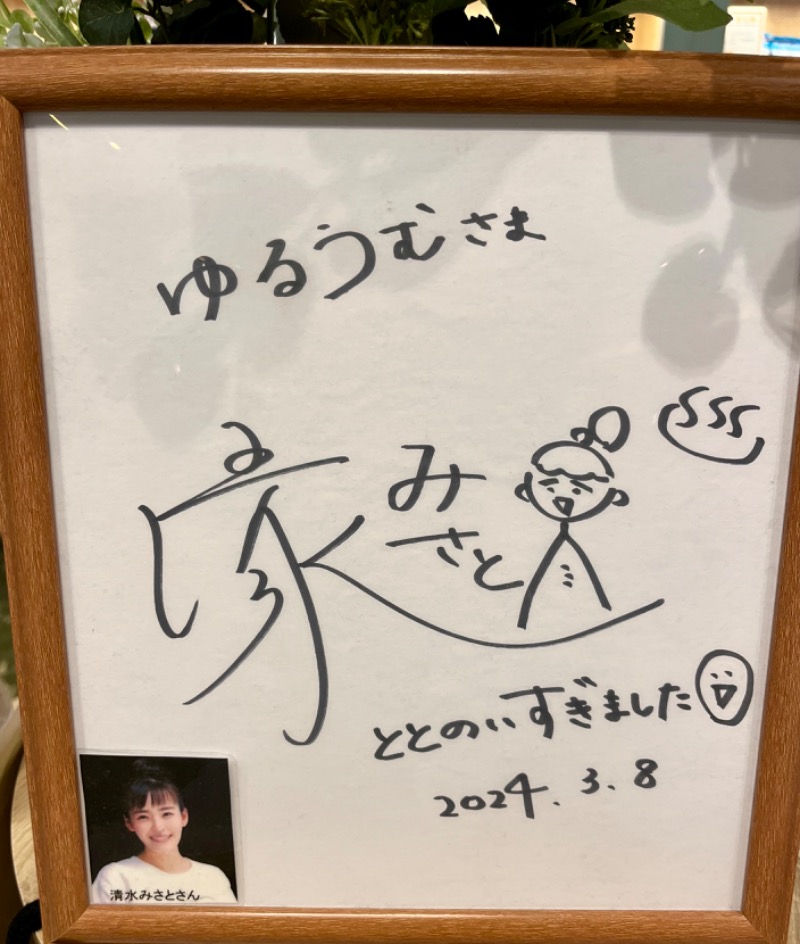 ゆるうむさま
みさと
ととのいすぎました
2024.3.8
清水みさとさん